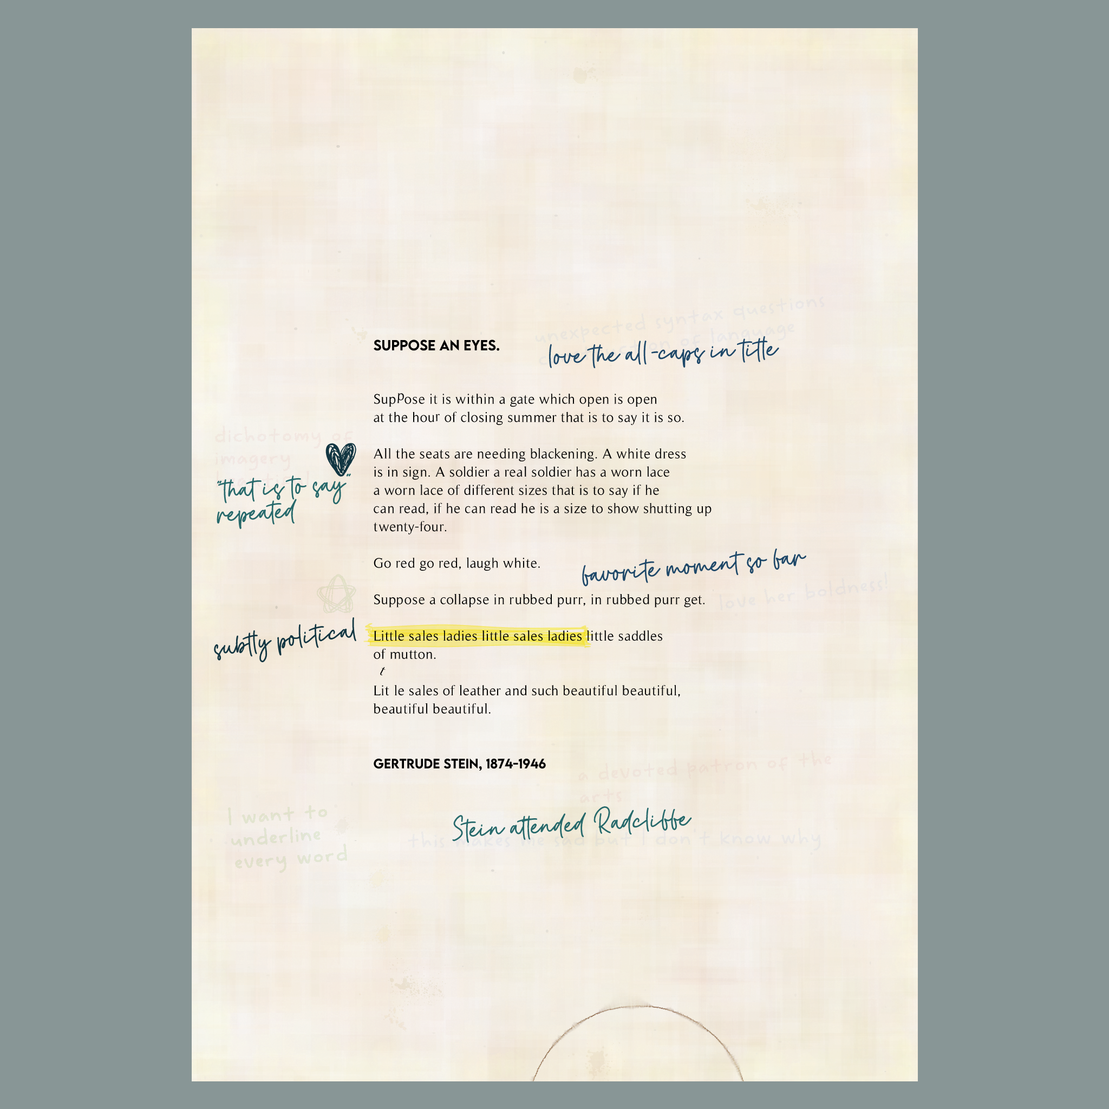 unexpected syntax questions
of language
SUPPOSE AN EYES.
love the all-caps in title
SupPose it is within a gate which open is open
at the hour of closing summer that is to say it is so.
dichotomy of
imagery
"that is to say"
repeated
All the seats are needing blackening. A white dress
is in sign. A soldier a real soldier has a worn lace
a worn lace of different sizes that is to say if he
can read, if he can read he is a size to show shutting up
twenty-four.
Go red go red, laugh white.
favorite moment so far
Suppose a collapse in rubbed purr, in rubbed purr get.
love her boldness!
subtly political
Little sales ladies little sales ladies little saddles
of mutton.
t
Lit le sales of leather and such beautiful beautiful,
beautiful beautiful.
GERTRUDE STEIN, 1874-1946
a devoted patron of the
arts
I want to
underline
every word
Stein attended Radcliffe
this makes me sad but I don't know why